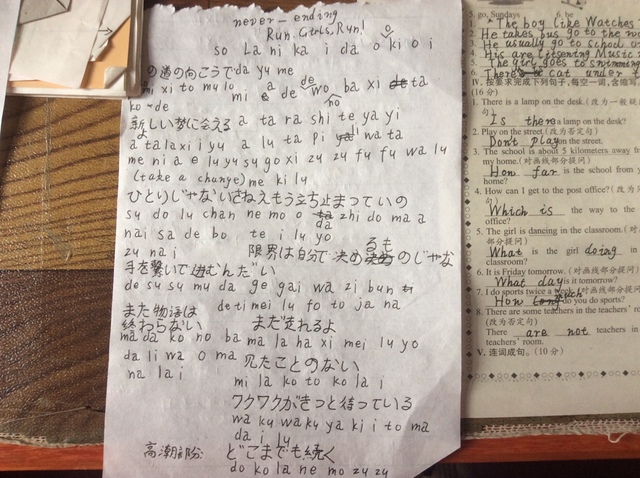 never-ending
Run, Girls, Run!
so la ni ka i da o ki o i
の道の向こうで da yu me
mi xi to mu lo mi a de wo ba xi ta
新しい勢に会える a ta ra shi te ya yi
a ta la xi i yu a lu ta pi wa ta
me ni a e lu yu su go xi zu zu fu fu wa lu
(take a change) me ki lu
ひとりじゃないさねえもう立ち止まっていの
su do lu chan ne mo o da zhi do ma a
nai sa de bo te i lu yo
zu na i 限界は自分で決めるものじゃな
手を繋いで進むんだい
de su su mu da ge gai wa zi bun
また物语は de ti mei lu fo to ja na
终わらない まだ走れるよ
ma da ko no ba ma la ha xi mei lu yo
da li wa o ma 见たことのない
na la i mi la ko to ko la i
ワクワクがきっと待っている
wa ku wa ku ya ki i to ma
da i lu
高潮部份: どこまでも続く
do ko la ne mo zu zu
5. go, Sundays 6. be
The boy like Watches
He takes bus go to the
He usually go to school
His are litsening Music
The girl goes to swimming
There cat under
IV. 按要求完成下列句子,每空一词,含缩写
(16分)
1. There is a lamp on the desk. (改为一般疑
句)
Is there a lamp on the desk?
2. Play on the street. (改为否定句)
Don't play on the street.
3. The school is about 5 kilometers away from
my home. (对画线部分提问)
How far is the school from your
home?
4. How can I get to the post office? (改为
句)
Which is the way to the
office?
5. The girl is dancing in the classroom. (对画线
部分提问)
What is the girl doing in
classroom?
6. It is Friday tomorrow. (对画线部分提问)
What day is it tomorrow?
7. I do sports twice a week. (对画线部分提问)
How much do you do sports?
8. There are some teachers in the teachers' room.
(改为否定句)
There are not teachers in
teachers' room.
V. 连词成句。(10分)